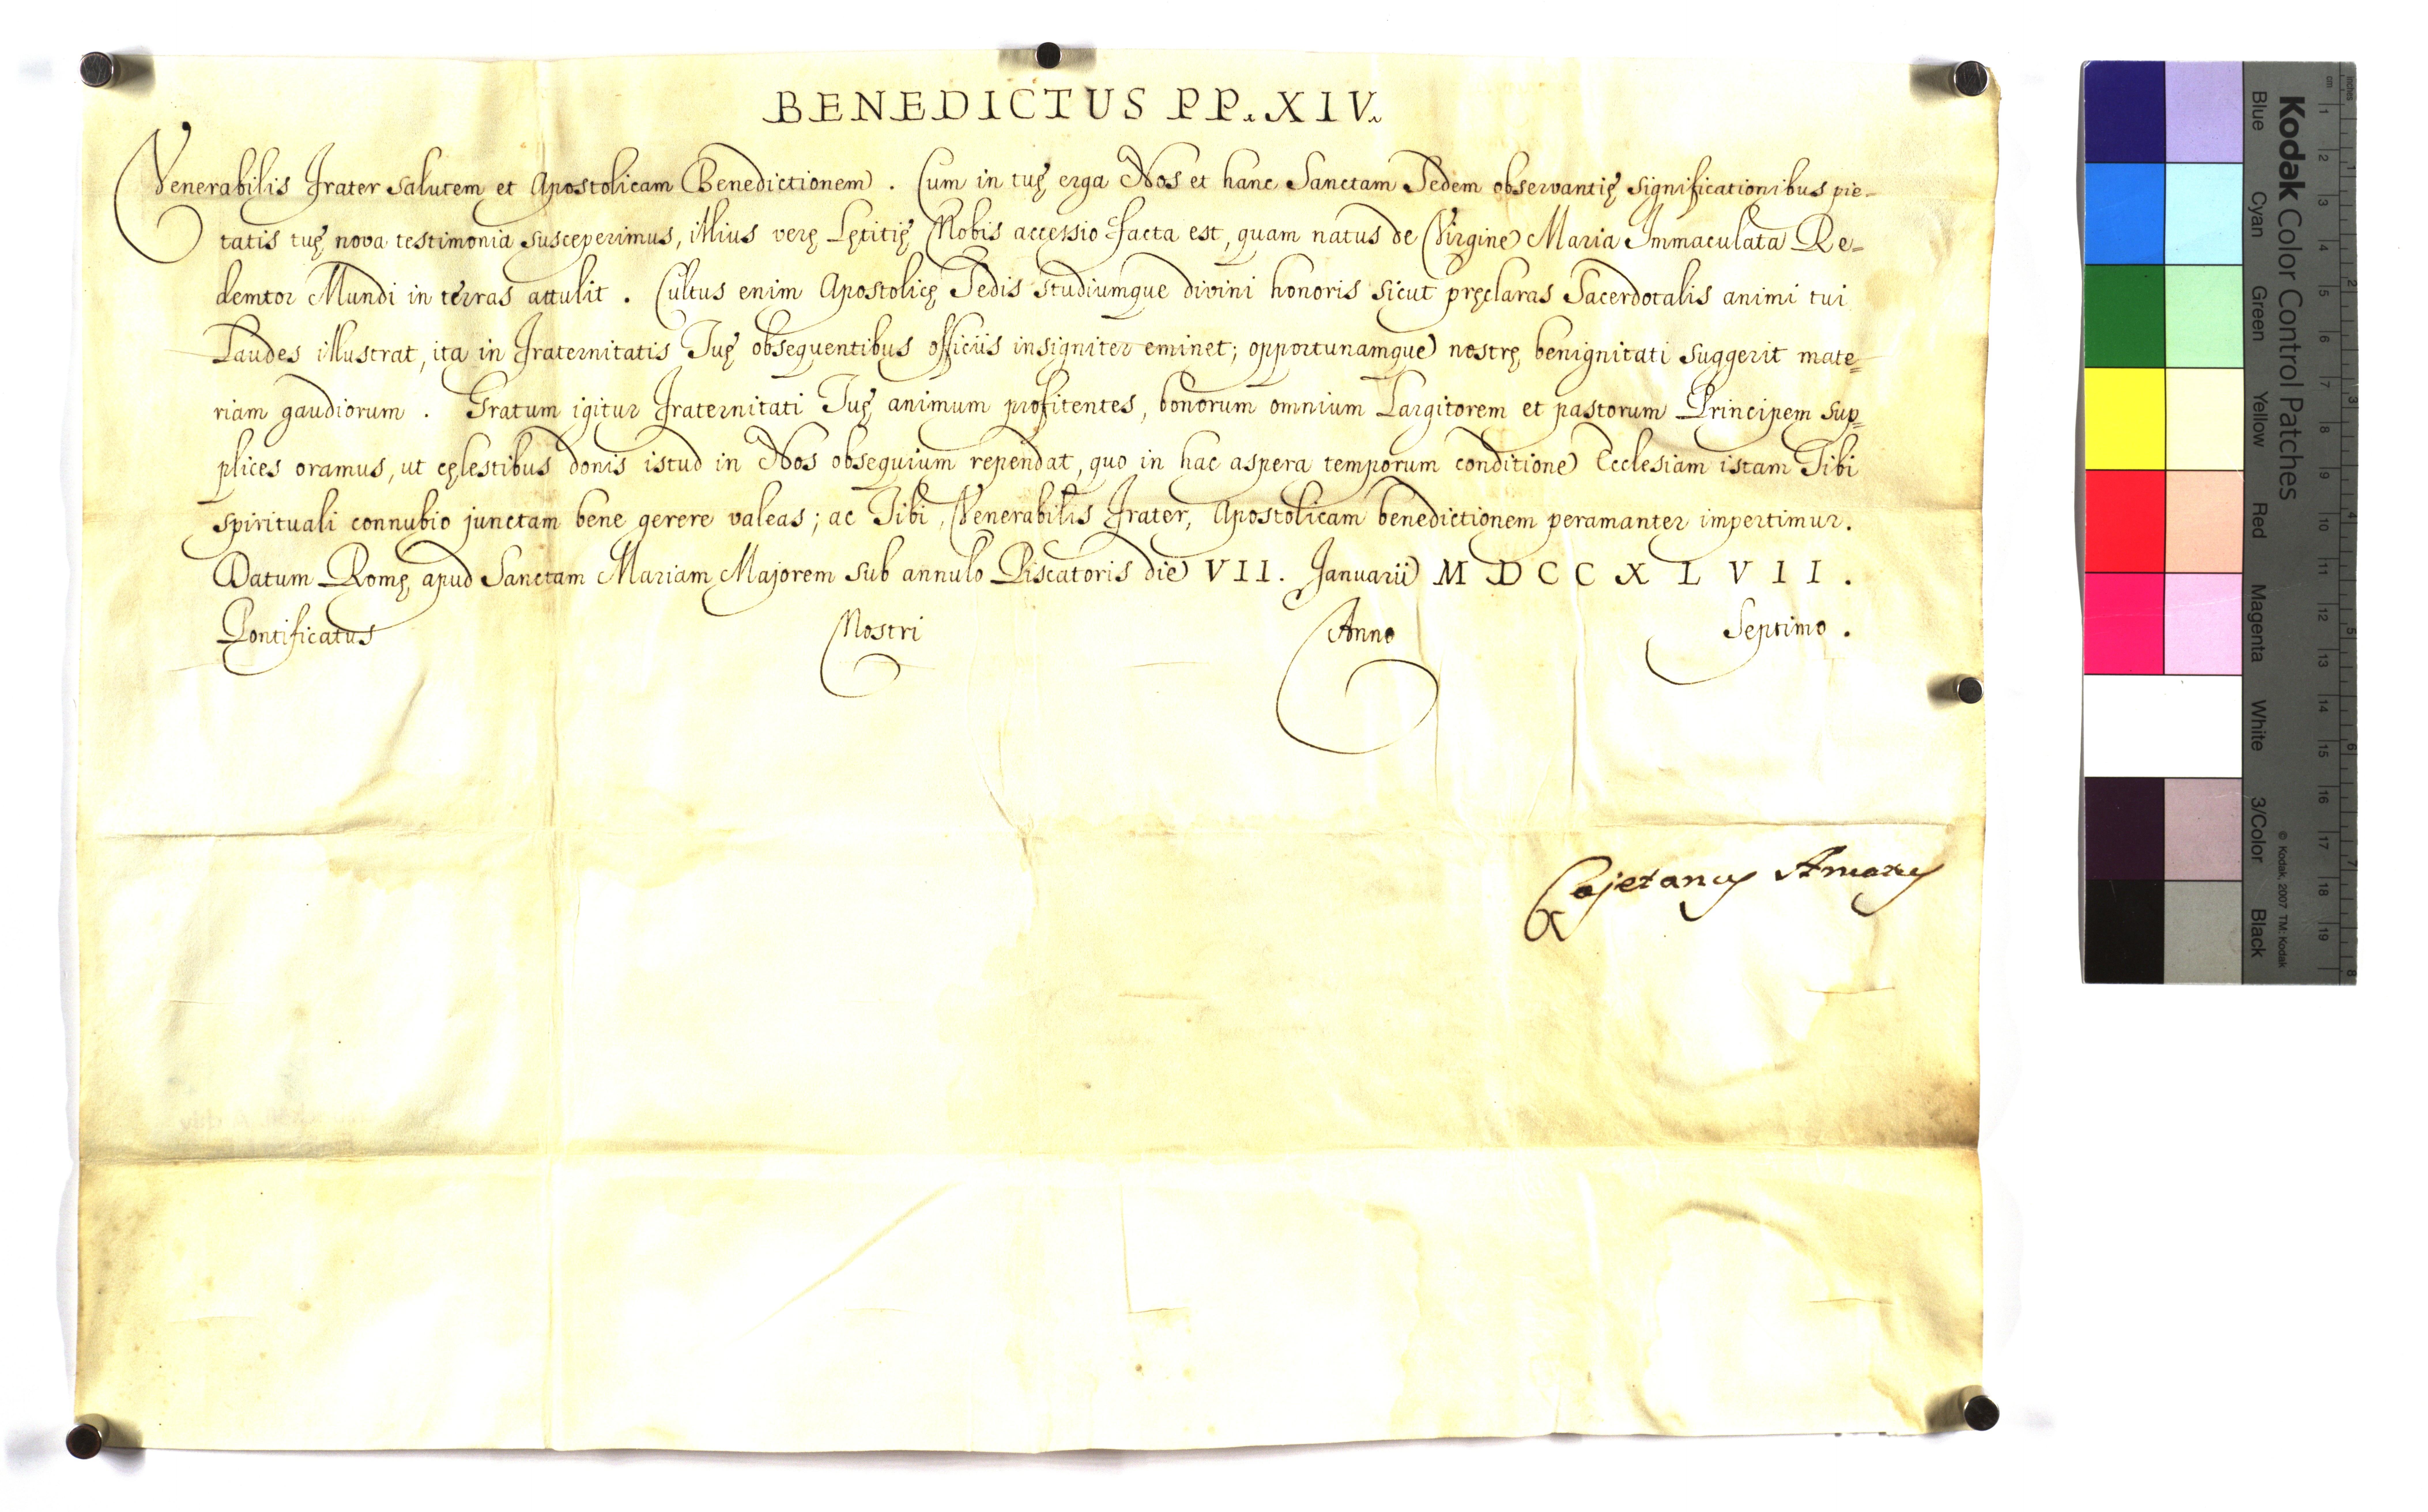 BENEDICTUS PP. XIV.
Venerabilis Frater salutem et Apostolicam Benedictionem. Cum in tuę erga Nos et hanc Sanctam Sedem observantię significationibus pie-
tatis tuę nova testimonia susceperimus, illius verę Lętitię Nobis accessio facta est, quam natus de Virgine Maria Immaculata Re=
demtor Mundi in terras attulit. Cultus enim Apostolicę Sedis studiumque divini honoris sicut pręclaras Sacerdotalis animi tui
Laudes illustrat, ita in Fraternitatis Tuę obsequentibus officiis insigniter eminet; opportunamque nostrę benignitati suggerit mate=
riam gaudiorum. Gratum igitur Fraternitati Tuę animum profitentes, bonorum omnium Largitorem et pastorum Principem sup=
plices oramus, ut cęlestibus donis istud in Nos obsequium rependat, quo in hac aspera temporum conditione Ecclesiam istam Tibi
spirituali connubio junctam bene gerere valeas; ac Tibi, Venerabilis Frater, Apostolicam benedictionem peramanter impertimur.
Datum Romę apud Sanctam Mariam Majorem sub annulo Piscatoris die VII. Januarii MDCCXLVII.
Pontificatus Nostri Anno Septimo.
Cajetanus Amatus
Kodak Color Control Patches
Blue Cyan Green Yellow Red Magenta White 3/Color Black
© Kodak, 2007 TM: Kodak
inches 1 2 3 4 5 6 7 8
cm 1 2 3 4 5 6 7 8 9 10 11 12 13 14 15 16 17 18 19